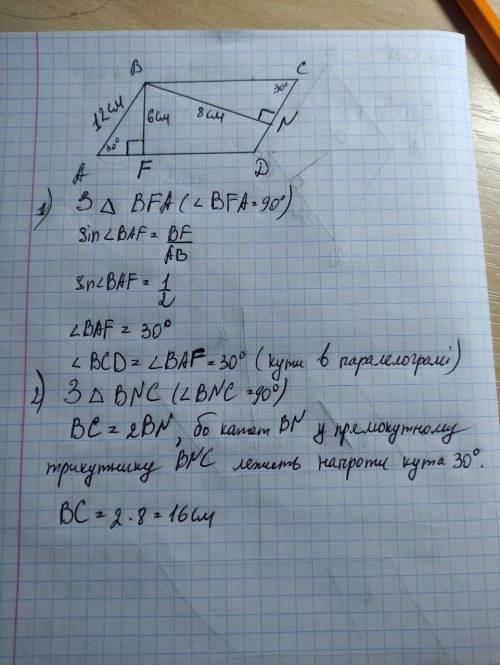 B
C
30°
12 см
6 см
8 см
N
30°
A
F
D
1) З △ BFA (∠BFA = 90°)
sin∠BAF = BF
AB
sin∠BAF = 1
2
∠BAF = 30°
∠BCD = ∠BAF = 30° (кути в паралелограмі)
2) З △ BNC (∠BNC = 90°)
BC = 2BN, бо катет BN у прямокутному
трикутнику BNC лежить напроти кута 30°.
BC = 2 · 8 = 16 см